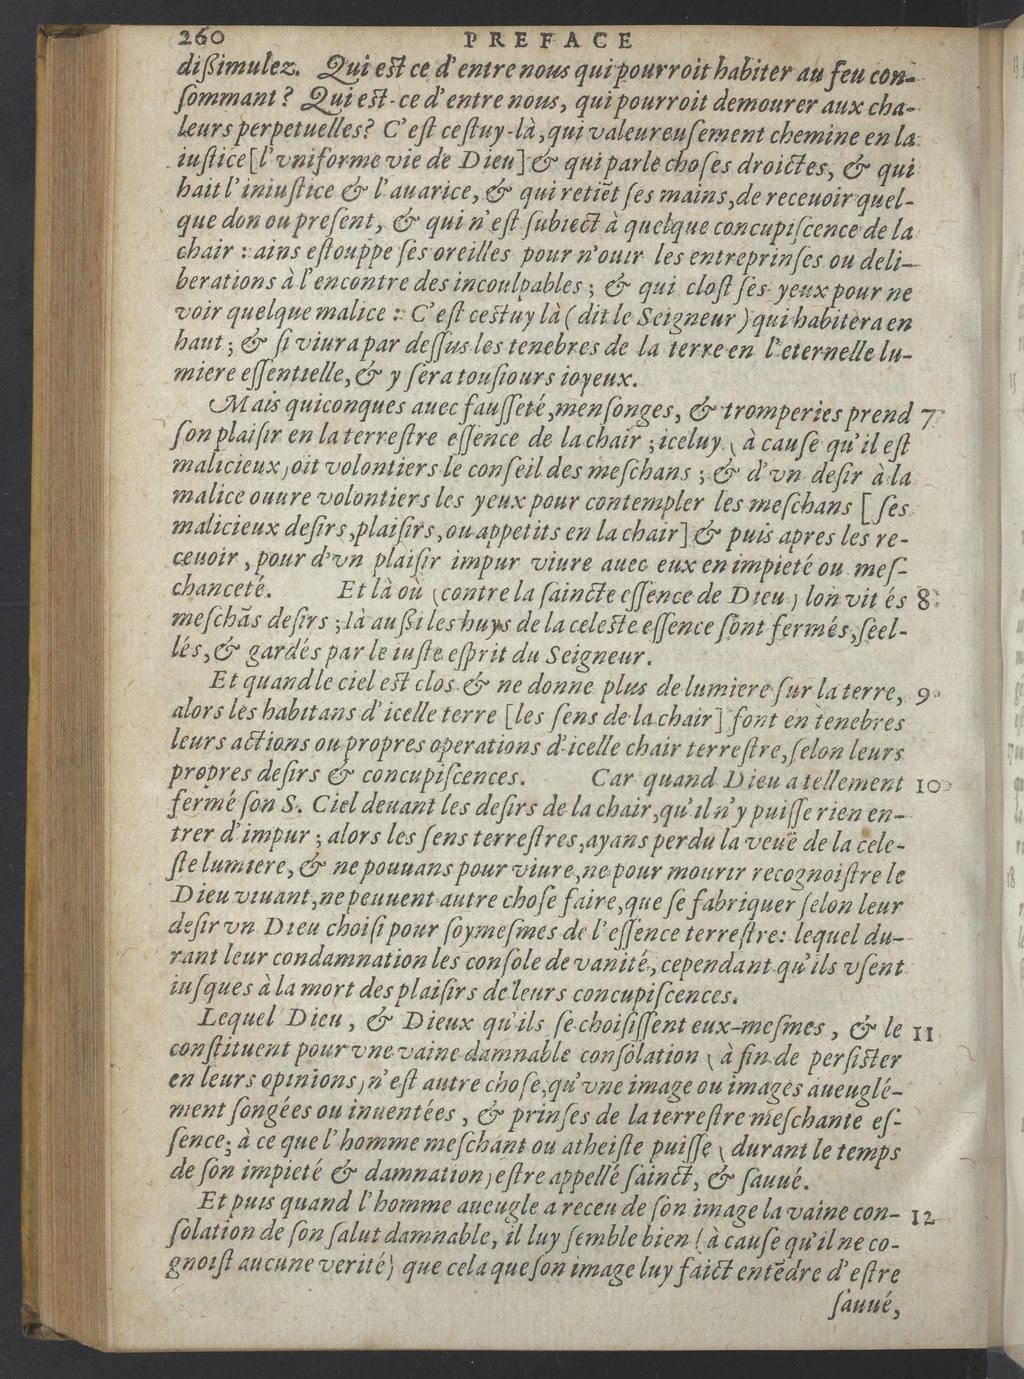 260 PREFACE
dißimulez. Qui est ce d'entre nous qui pourroit habiter au feu con-
ſommant? Qui est-ce d'entre nous, qui pourroit demourer aux cha-
leurs perpetuelles? C'eſt ceſtuy-là, qui valeureuſement chemine en la
iuſtice [l'vniforme vie de Dieu] & qui parle choſes droictes, & qui
hait l'iniuſtice & l'auarice, & qui retiẽt ſes mains, de receuoir quel-
que don ou preſent, & qui n'eſt ſubiect à quelque concupiſcence de la
chair : ains eſtouppe ſes oreilles pour n'ouir les entreprinſes ou deli-
berations à l'encontre des incoulpables ; & qui cloſt ſes yeux pour ne
voir quelque malice : C'eſt cestuy là (dit le Seigneur) qui habitera en
haut ; & ſi viura par deſſus les tenebres de la terre en l'eternelle lu-
miere eſſentielle, & y ſera touſiours ioyeux.
Mais quiconques auec fauſſeté, menſonges, & tromperies prend 7
ſon plaiſir en la terreſtre eſſence de la chair ; iceluy (à cauſe qu'il eſt
malicieux) oit volontiers le conſeil des meſchans ; & d'vn deſir à la
malice ouure volontiers les yeux pour contempler les meſchans [ſes
malicieux deſirs, plaiſirs, ou appetits en la chair] & puis apres les re-
ceuoir, pour d'vn plaiſir impur viure auec eux en impieté ou meſ-
chanceté. Et là où (contre la ſaincte eſſence de Dieu) lon vit és 8
meſchãs deſirs ; là außi les huys de la celeste eſſence ſont fermés, ſéel-
lés, & gardés par le iuste eſprit du Seigneur.
Et quand le ciel est clos & ne donne plus de lumiere ſur la terre, 9
alors les habitans d'icelle terre [les ſens de la chair] font en tenebres
leurs actions ou propres operations d'icelle chair terreſtre, ſelon leurs
propres deſirs & concupiſcences. Car quand Dieu a tellement 10
fermé ſon S. Ciel deuant les deſirs de la chair, qu'il n'y puiſſe rien en-
trer d'impur ; alors les ſens terreſtres, ayans perdu la veuë de la cele-
ſte lumiere, & ne pouuans pour viure, ne pour mourir recognoiſtre le
Dieu viuant, ne peuuent autre choſe faire, que ſe fabriquer ſelon leur
deſir vn Dieu choiſi pour ſoymeſmes de l'eſſence terreſtre : lequel du-
rant leur condamnation les conſole de vanité, cependant qu'ils vſent
iuſques à la mort des plaiſirs de leurs concupiſcences.
Lequel Dieu, & Dieux qu'ils ſe choiſiſſent eux-meſmes, & le 11
conſtituent pour vne vaine damnable conſolation (à fin de perſiſter
en leurs opinions) n'eſt autre choſe, qu'vne image ou images aueuglé-
ment ſongées ou inuentées, & prinſes de la terreſtre meſchante eſ-
ſence ; à ce que l'homme meſchant ou atheiſte puiſſe (durant le temps
de ſon impieté & damnation) eſtre appellé ſainct, & ſauué.
Et puis quand l'homme aueugle a receu de ſon image la vaine con- 12
ſolation de ſon ſalut damnable, il luy ſemble bien (à cauſe qu'il ne co-
gnoiſt aucune verité) que cela que ſon image luy faict entẽdre d'eſtre
ſauué,